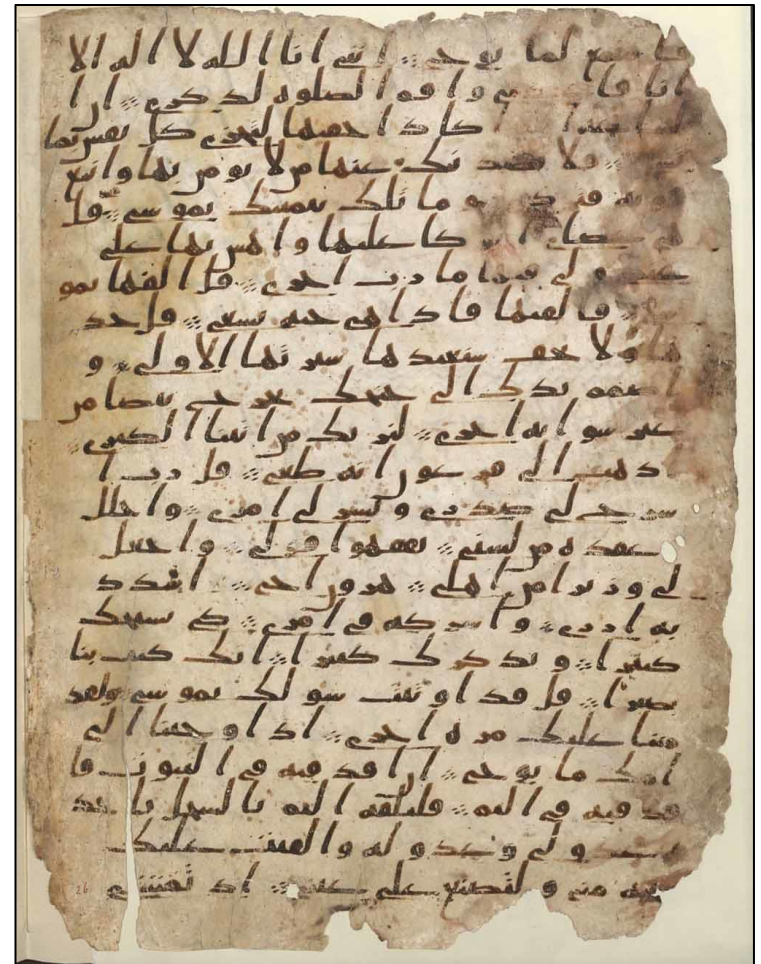 فاستمع لما يوحى انني انا الله لا اله الا
انا واقم الصلوه لذكري ان ا
اكاد اخفيها لتجزى كل نفس بما
فلا يصدنك عنها من لا يومن بها واتبع
هويه و ما تلك بيمينك يموسى قل
هي عصاي عليها واهش بها على
غنمي ولي فيها مارب اخرى قل القها يمو
سى فالقيها فاذا هي حيه تسعى قل خذ
ها ولا تخف سنعيدها سيرتها الاولى و
اضمم يدك الى جنحك تخرج بيضا من
غير سو ايه اخرى لنريك من ايتنا الكبرى
اذهب الى فرعون انه طغى قل رب ا
شرح لي صدري ويسر لي امري واحلل
عقده من لسني يفقهوا قولي واجعل
لي وزيرا من اهلي هرون اخي اشدد
به ازري واشركه في امري كي نسبحك
كثيرا ونذكرك كثيرا انك كنت بنا
بصيرا قل قد اوتيت سولك يموسى ولقد
مننا عليك مره اخرى اذ اوحينا الى
امك ما يوحى ان اقذفيه في التبوت فا
قذفيه في اليم فليلقه اليم بالسحل ياخذ
ه عدو لي وعدو له والقيت عليك
محبه مني ولتصنع على عيني اذ تمشي
26